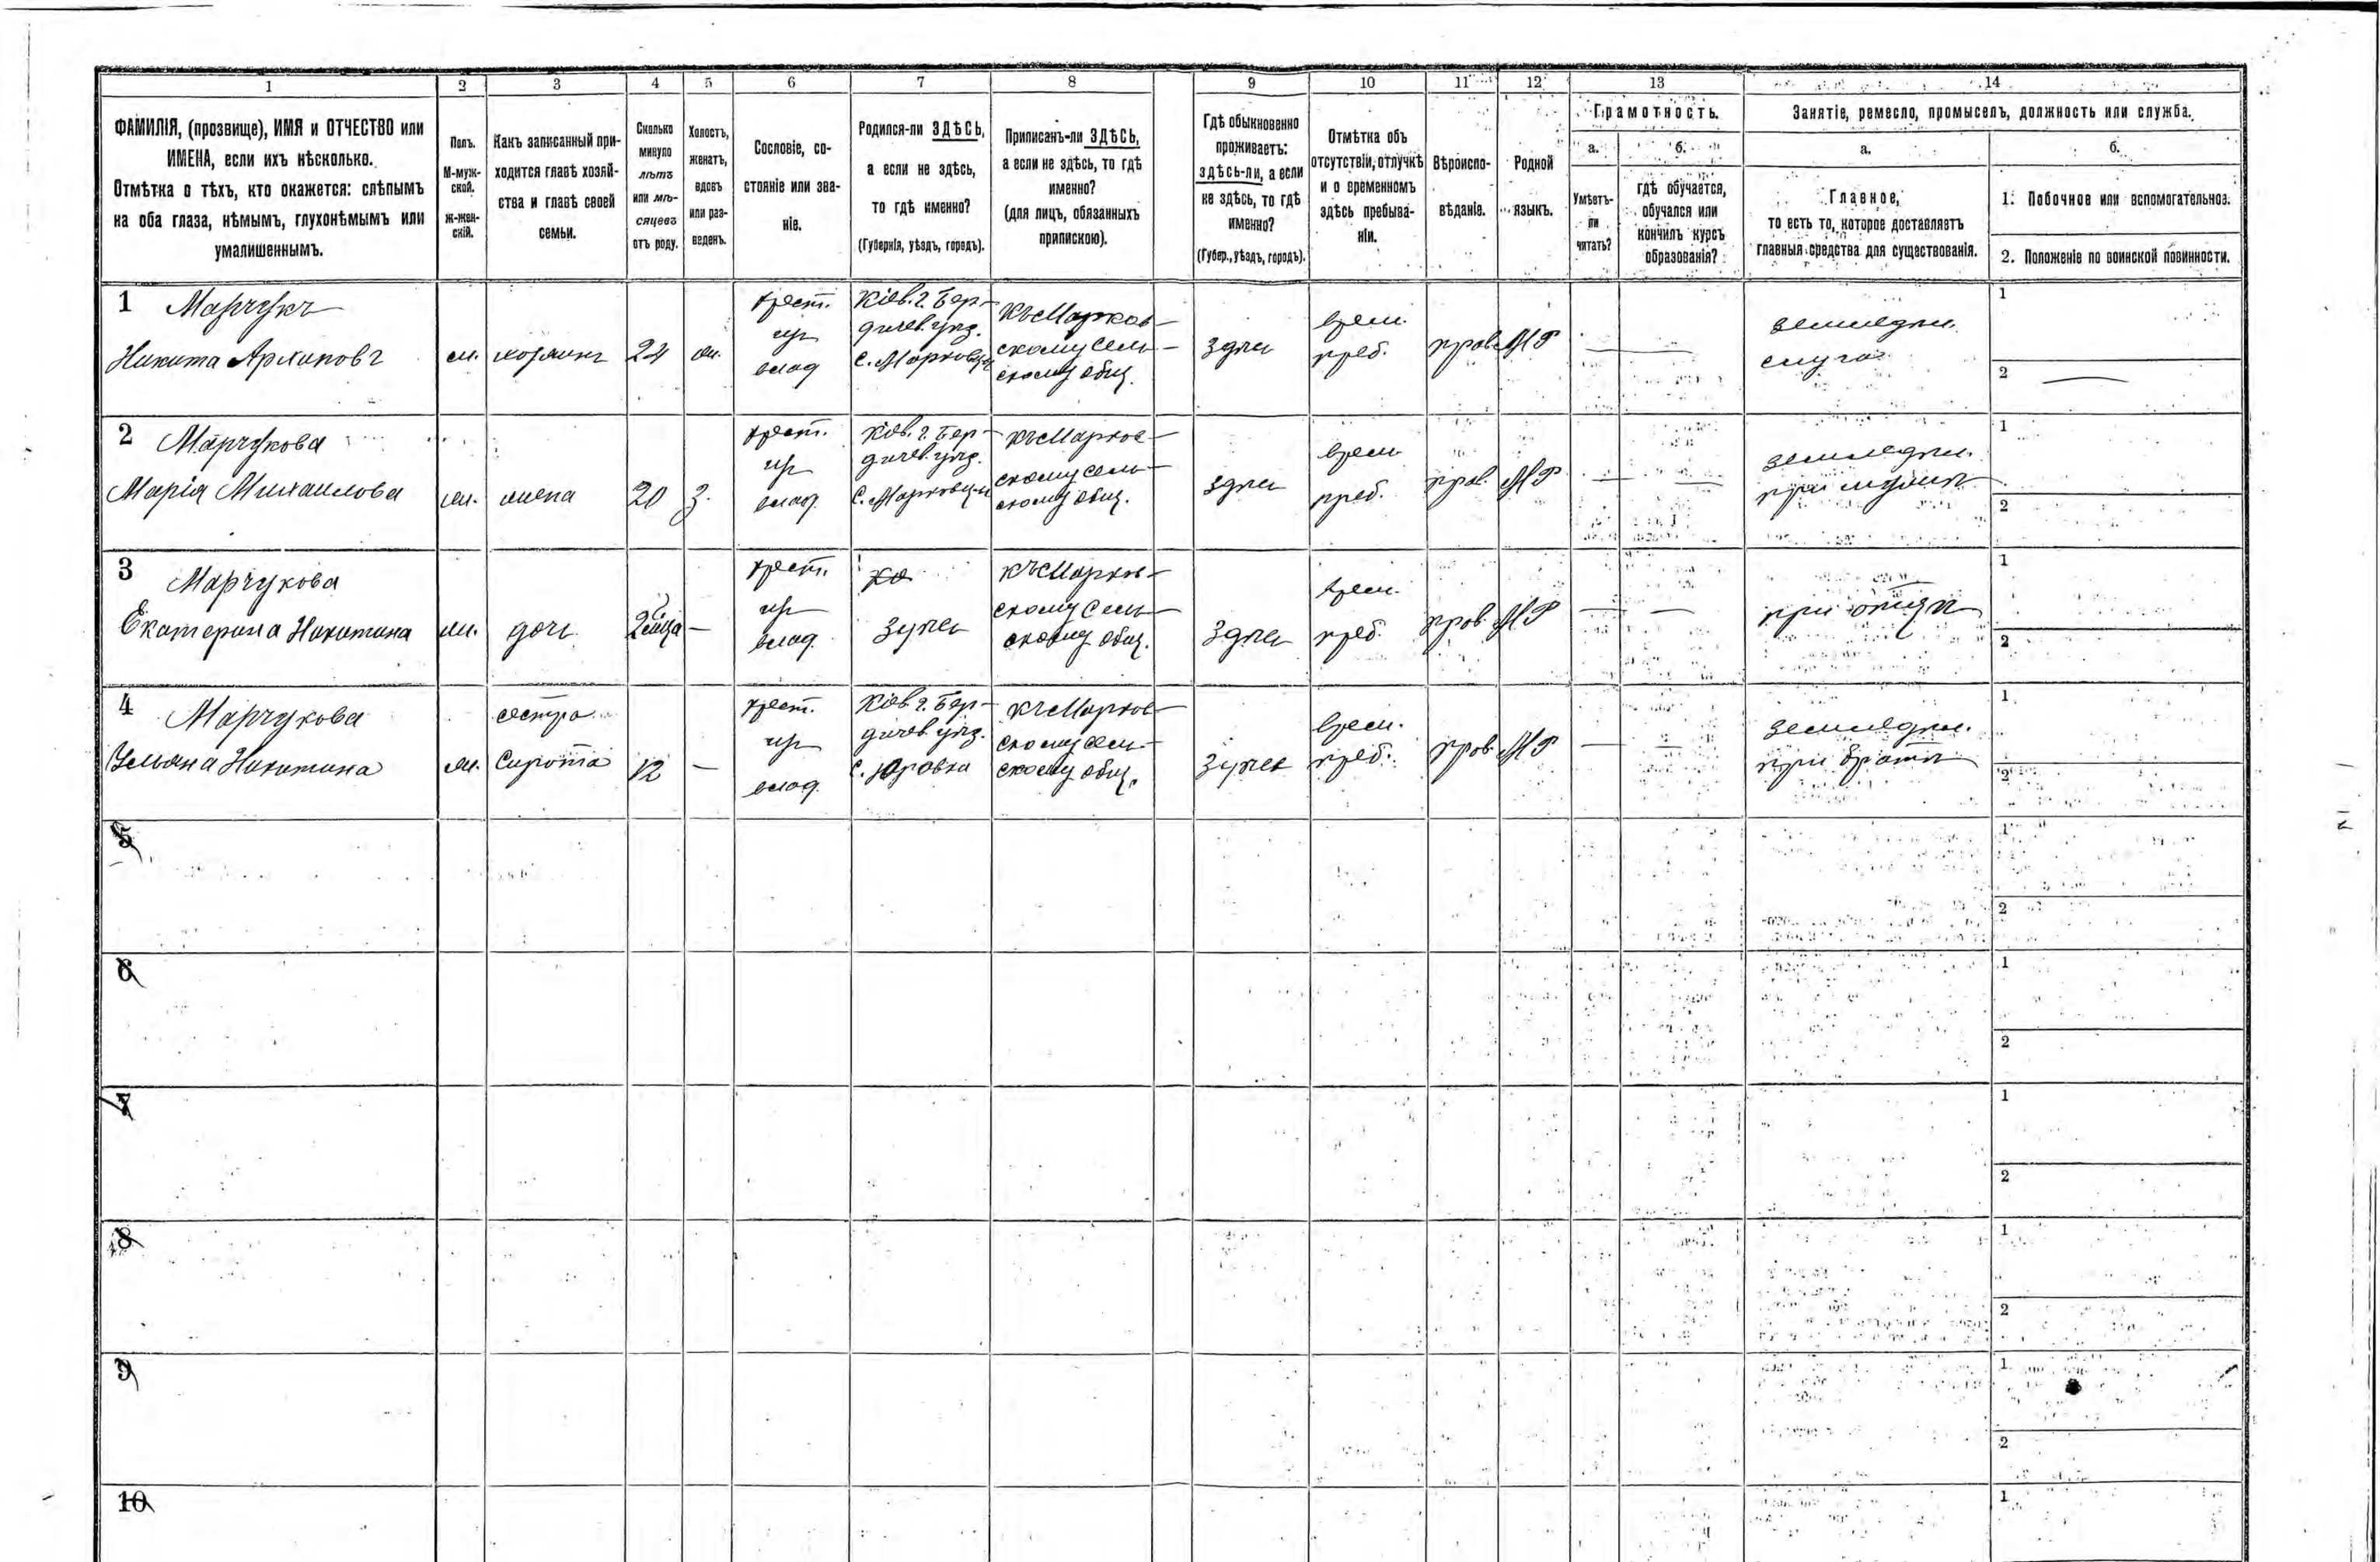 1 2 3 4 5 6 7 8 9 10 11 12 13 14
ФАМИЛІЯ, (прозвище), ИМЯ и ОТЧЕСТВО или
ИМЕНА, если ихъ нѣсколько.
Отмѣтка о тѣхъ, кто окажется: слѣпымъ
на оба глаза, нѣмымъ, глухонѣмымъ или
умалишеннымъ.
Полъ.
М-муж-
ской.
ж-жен-
скій.
Какъ записанный при-
ходится главѣ хозяй-
ства и главѣ своей
семьи.
Сколько
минуло
лѣтъ
или мѣ-
сяцевъ
отъ роду.
Холостъ,
женатъ,
вдовъ
или раз-
веденъ.
Сословіе, со-
стояніе или зва-
ніе.
Родился-ли ЗДѢСЬ,
а если не здѣсь,
то гдѣ именно?
(Губернія, уѣздъ, городъ).
Приписанъ-ли ЗДѢСЬ,
а если не здѣсь, то гдѣ
именно?
(для лицъ, обязанныхъ
припискою).
Гдѣ обыкновенно
проживаетъ:
здѣсь-ли, а если
не здѣсь, то гдѣ
именно?
(Губер., уѣздъ, городъ).
Отмѣтка объ
отсутствіи, отлучкѣ
и о временномъ
здѣсь пребыва-
ніи.
Вѣроиспо-
вѣданіе.
Родной
языкъ.
Грамотность.
а.
Умѣетъ-
ли
читать?
б.
гдѣ обучается,
обучался или
кончилъ курсъ
образованія?
Занятіе, ремесло, промыселъ, должность или служба.
а.
Главное,
то есть то, которое доставляетъ
главныя средства для существованія.
б.
1. Побочное или вспомогательное.
2. Положеніе по воинской повинности.
1 Марчукъ
Никита Архиповъ
24
крест.
влад
Кіев. г. Бер-
дичев. уѣз.
с. Марковцы
къ Марков-
скому сель-
скому общ.
здѣсь
врем.
преб.
прав.
МР
земледѣл.
слуга
1
2
2 Марчукова
Марія Михаилова
ж.
жена
20
з.
крест.
влад.
Кіев. г. Бер-
дичев. уѣз.
с. Марковцы
къ Марков-
скому сель-
скому общ.
здѣсь
врем.
преб.
прав.
МР
земледѣл.
при мужѣ
1
2
3 Марчукова
Екатерина Никитина
ж.
дочь
крест.
влад.
здѣсь
къ Марков-
скому сель-
скому общ.
здѣсь
врем.
преб.
прав.
МР
при отцѣ
1
2
4 Марчукова
Ульяна Никитина
ж.
сестра
сирота
12
крест.
влад.
Кіев. г. Бер-
дичев. уѣз.
с. Юровка
къ Марков-
скому сель-
скому общ.
здѣсь
врем.
преб.
прав.
МР
земледѣл.
при братѣ
1
2
5
1
2
6
1
2
7
1
2
8
1
2
9
1
2
10
1